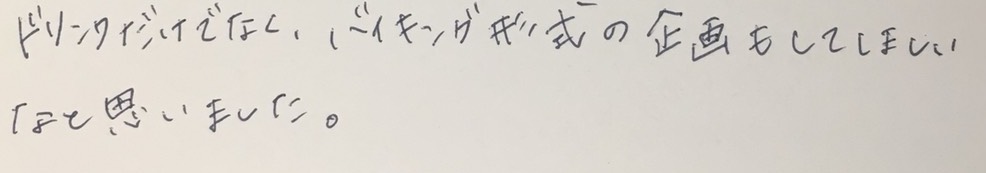 ドリンクだけでなく、バイキング形式の企画もしてほしい
なと思いました。